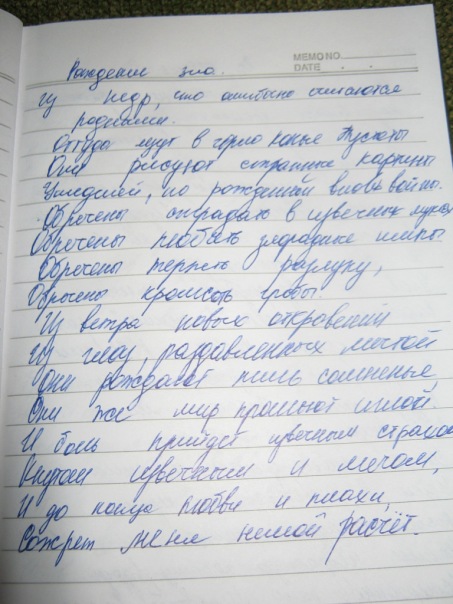 MEMO NO
DATE . .
Рождение зла.
Из недр, что ошибочно считаются
родными.
Оттуда идут в черно Пустоты
Они рисуют странные картины
Ушедшей, но рожденной вновь войны.
Обречены страдать в извечных муках
Обречены любить
Обречены терпеть разлуку,
Обречены кромсать гробы.
Из ветра новых откровений
Из глаз, раздавленных мечтой
Они рождают лишь сомненье,
Они же мир прошьют иглой.
И боль придёт извечным страхом
Кнутом извечным и мечом,
И до конца любви и плахи,
Сожрет меня немой расчёт.